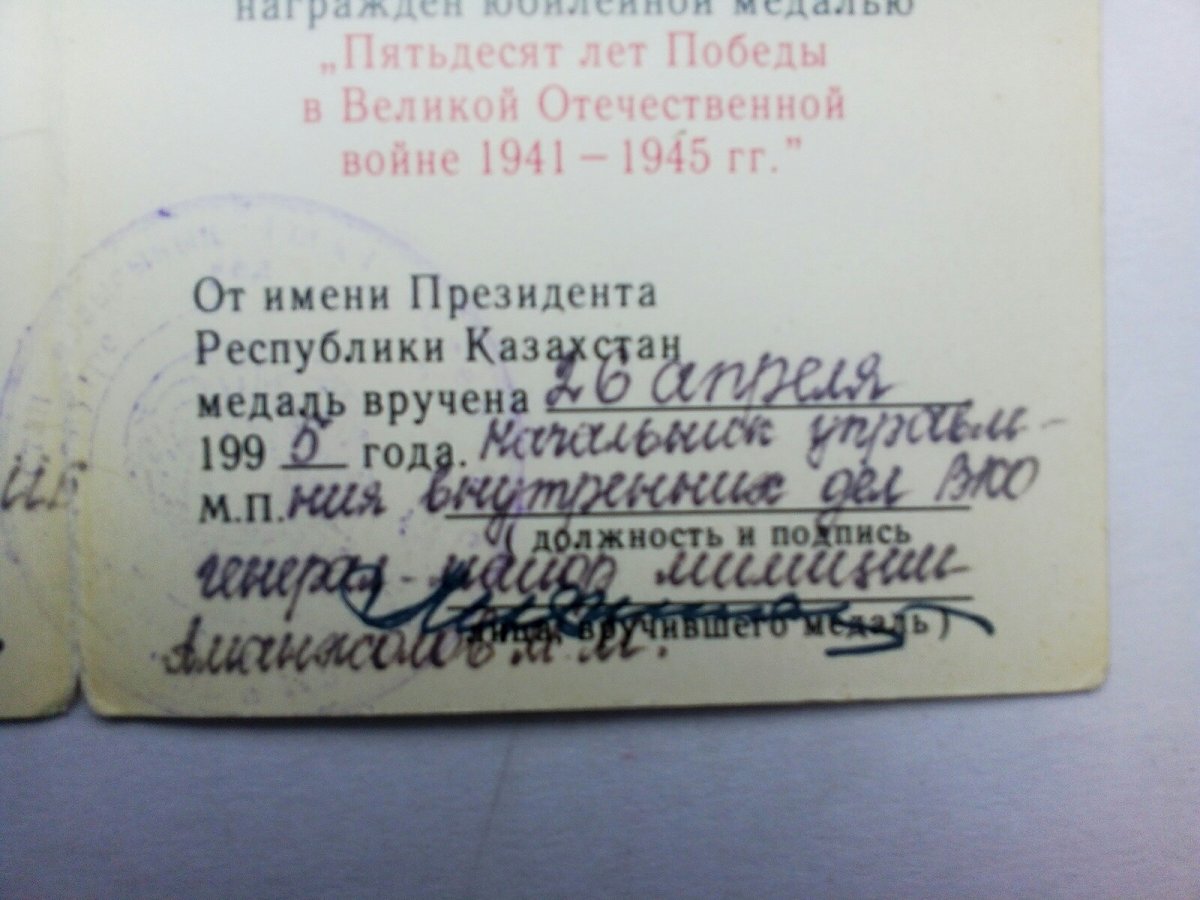 награжден юбилейной медалью
„Пятьдесят лет Победы
в Великой Отечественной
войне 1941 – 1945 гг.”
От имени Президента
Республики Казахстан
медаль вручена 26 апреля
1995 года. Начальник управле-
М.П. ния внутренних дел ВКО
(должность и подпись
генерал-майор милиции
лица, вручившего медаль)
Аманжолов М.М.